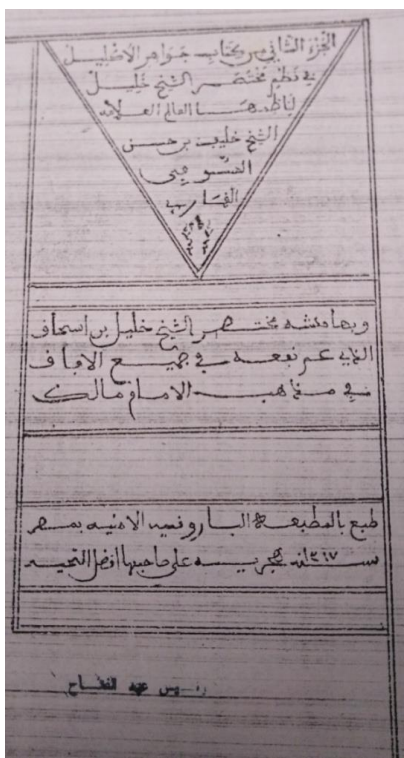 الجزء الثاني من كتاب جواهر الاكليل
في نظم مختصر الشيخ خليل
لناظمها العالم العلامه
الشيخ خليفة بن حسن
السوفي
القماري
وبهامشه مختصر الشيخ خليل بن اسحاف
الذي عم نبعه في جميع الافاف
في مذهب الامام مالك
طبع بالمطبعة البارونيه الادبيه بمصر
سنه ١٣١٧ هجريه على صاحبها افضل التحيه
عبد الفتاح